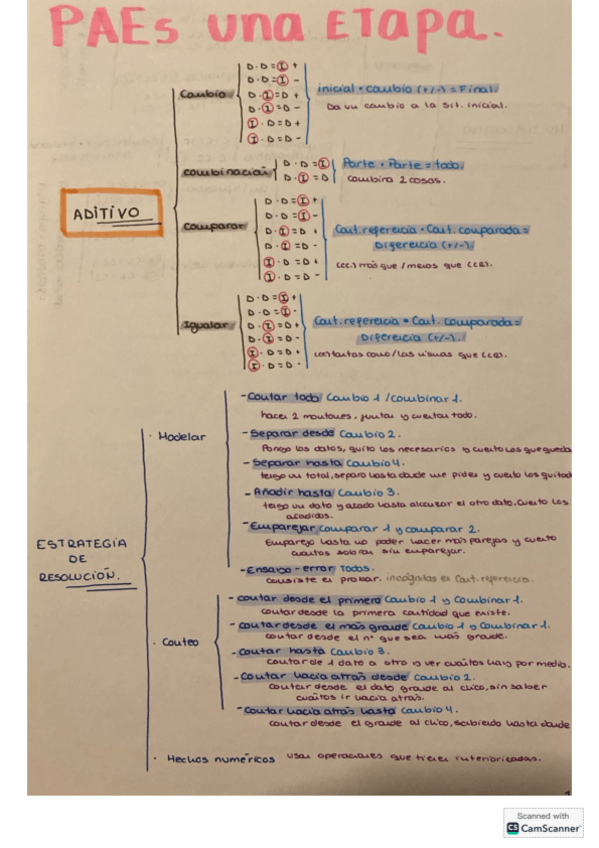 PAEs una ETAPA.
Cambio
D · D = I +
D · D = I -
D · I = D +
D · I = D -
I · D = D +
I · D = D -
inicial · cambio (+/-) = Final.
Da un cambio a la sit. inicial.
combinación
D · D = I
D · I = D
Parte · Parte = todo.
combina 2 cosas.
ADITIVO
Comparar
D · D = I +
D · D = I -
D · I = D +
D · I = D -
I · D = D +
I · D = D -
Cant. referencia · Cant. comparada =
Diferencia (+/-).
(cc.) más que / menos que (cR).
Igualar
D · D = I +
D · D = I -
D · I = D +
D · I = D -
I · D = D +
I · D = D -
Cant. referencia · Cant. comparada =
Diferencia (+/-).
(cc) tantas como / las mismas que (cR).
ESTRATEGIA
DE
RESOLUCIÓN.
· Modelar
- Contar todo Cambio 1 / Combinar 1.
hacer 2 montones, juntar y cuentas todo.
- Separar desde Cambio 2.
Pongo los datos, quito los necesarios y cuento los que queda
- Separar hasta Cambio 4.
tengo un total, separo hasta donde me piden y cuento los quitad
- Añadir hasta Cambio 3.
tengo un dato y añado hasta alcanzar el otro dato. Cuento los
añadidos.
- Emparejar Comparar 1 y comparar 2.
Emparejo hasta no poder hacer más parejas y cuento
cuantos sobran sin emparejar.
- Ensayo - error Todos.
consiste en probar. incógnitas es Cant. referencia.
· Conteo
- contar desde el primero Cambio 1 y Combinar 1.
contar desde la primera cantidad que existe.
- contar desde el más grande Cambio 1 y Combinar 1.
contar desde el nº que sea más grande.
- Contar hasta Cambio 3.
contar de 1 dato a otro y ver cuántos hay por medio.
- Contar hacia atrás desde Cambio 2.
contar desde el dato grande al chico, sin saber
cuántos ir hacia atrás.
- Contar hacia atrás hasta Cambio 4.
contar desde el grande al chico, sabiendo hasta donde
· Hechos numéricos usar operaciones que tienes interiorizadas.
Scanned with
CS CamScanner